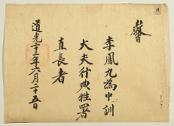 教旨
李鳳九為中訓
大夫行典牲署
直長者
道光十三年六月二十五日